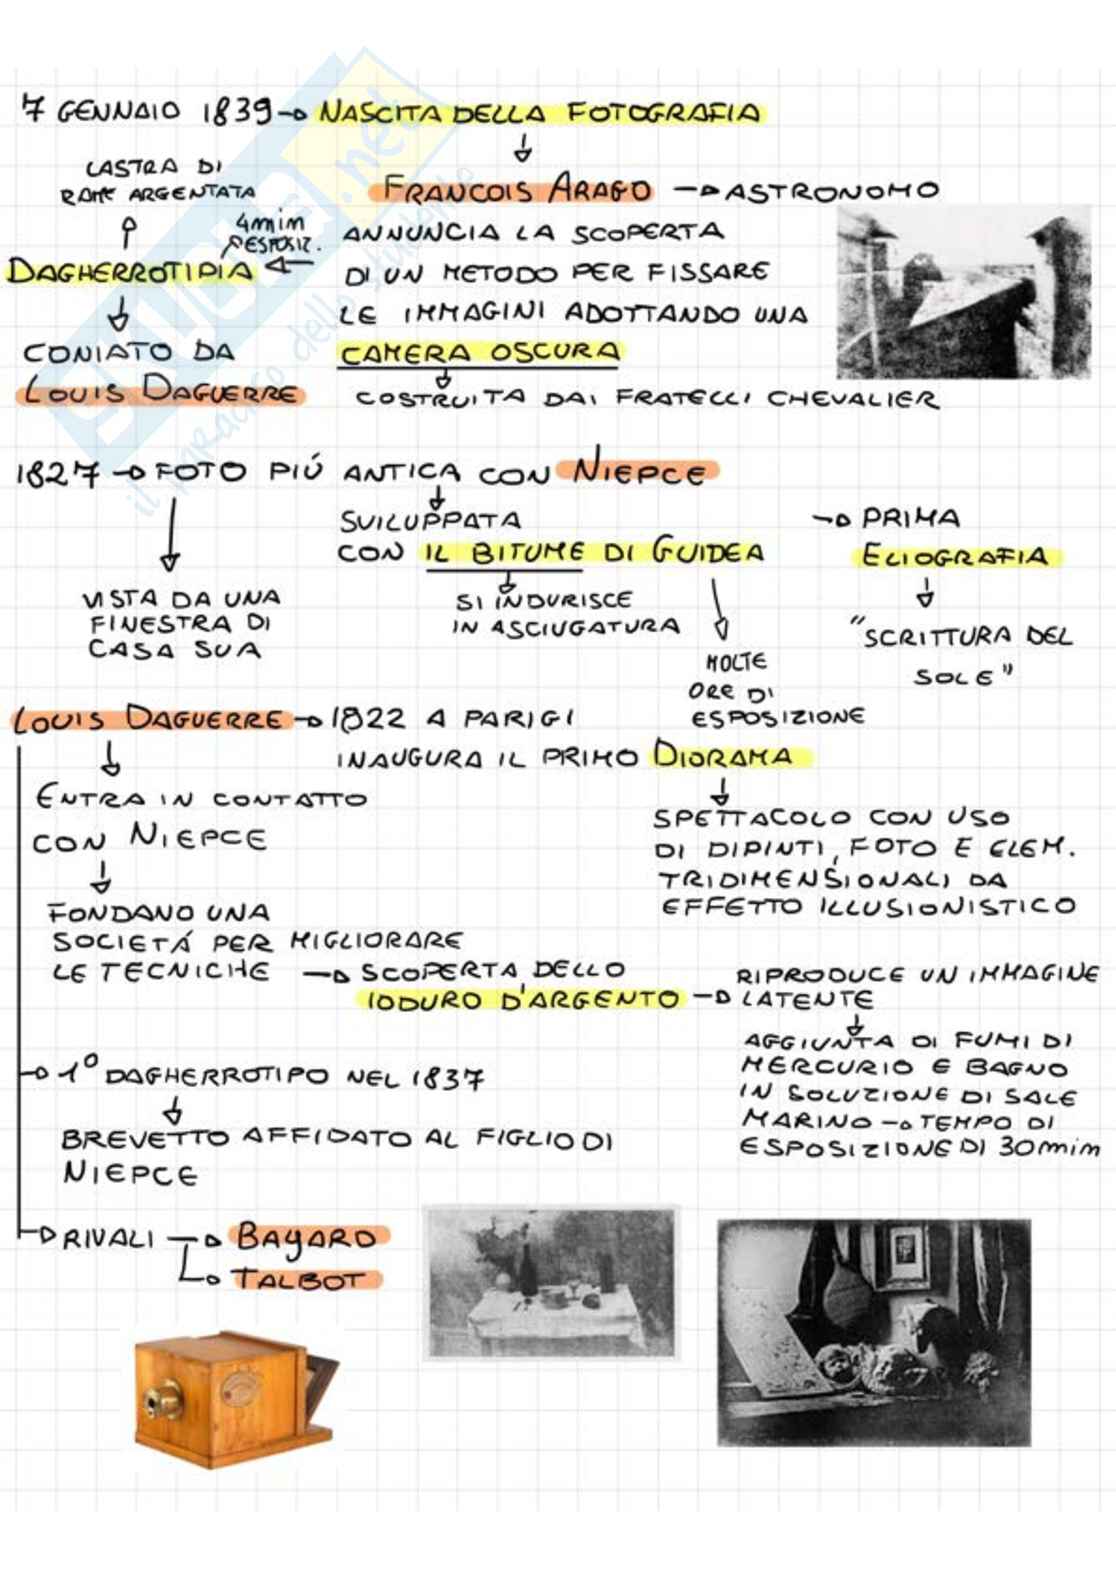 7 GENNAIO 1839 → NASCITA DELLA FOTOGRAFIA
LASTRA DI
RAME ARGENTATA
FRANCOIS ARAGO → ASTRONOMO
4min
ESPOSIZ.
ANNUNCIA LA SCOPERTA
DAGHERROTIPIA
DI UN METODO PER FISSARE
LE IMMAGINI ADOTTANDO UNA
CONIATO DA
CAMERA OSCURA
LOUIS DAGUERRE
COSTRUITA DAI FRATELLI CHEVALIER
1827 → FOTO PIÚ ANTICA CON NIEPCE
SVILUPPATA
CON IL BITUME DI GUIDEA
→ PRIMA
ELIOGRAFIA
VISTA DA UNA
FINESTRA DI
CASA SUA
SI INDURISCE
IN ASCIUGATURA
"SCRITTURA DEL
SOLE"
MOLTE
ORE DI
ESPOSIZIONE
LOUIS DAGUERRE → 1822 A PARIGI
INAUGURA IL PRIMO DIORAMA
ENTRA IN CONTATTO
CON NIEPCE
SPETTACOLO CON USO
DI DIPINTI, FOTO E ELEM.
TRIDIMENSIONALI DA
EFFETTO ILLUSIONISTICO
FONDANO UNA
SOCIETÁ PER MIGLIORARE
LE TECNICHE → SCOPERTA DELLO
IODURO D'ARGENTO → RIPRODUCE UN IMMAGINE
LATENTE
AGGIUNTA DI FUMI DI
MERCURIO E BAGNO
IN SOLUZIONE DI SALE
MARINO → TEMPO DI
ESPOSIZIONE DI 30min
→ 1° DAGHERROTIPO NEL 1837
BREVETTO AFFIDATO AL FIGLIO DI
NIEPCE
→ RIVALI → BAYARD
→ TALBOT
skuola.net
il paradiso dello studente